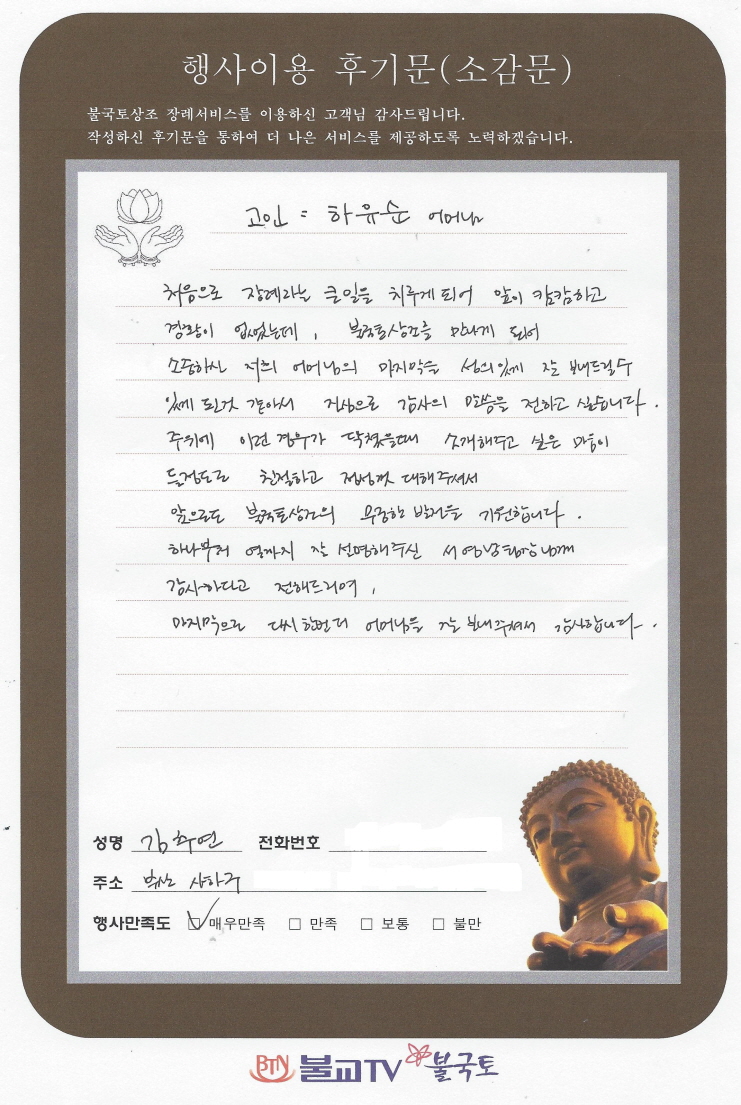 행사이용 후기문(소감문)
불국토상조 장례서비스를 이용하신 고객님 감사드립니다.
작성하신 후기문을 통하여 더 나은 서비스를 제공하도록 노력하겠습니다.
고인 : 하유순 어머님
처음으로 장례라는 큰일을 치루게되어 앞이 캄캄하고
경황이 없었는데, 불국토상조를 만나게 되어
소중하신 저희 어머님의 마지막을 성의있게 잘 보내드릴수
있게 된것 같아서 진심으로 감사의 말씀을 전하고 싶습니다.
주위에 이런 경우가 닥쳤을때 소개해주고 싶은 마음이
들정도로 친절하고 정성껏 대해주셔서
앞으로도 불국토상조의 무궁한 발전을 기원합니다.
하나부터 열까지 잘 설명해주신 서영남팀장님께
감사하다고 전해드리며,
마지막으로 다시한번더 어머님을 잘 보내주셔서 감사합니다.
성명 김휴연 전화번호
주소 부산 사하구
행사만족도 매우만족 만족 보통 불만
BTN 불교TV 불국토